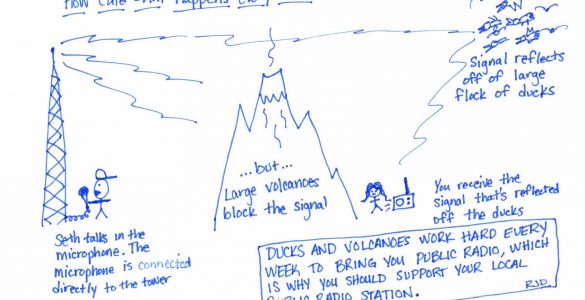 Signal reflects
off of large
flock of ducks
...but...
Large volcanoes
block the signal
You receive the
signal that's reflected
off the ducks
Seth talks in the
microphone. The
microphone is connected
directly to the tower
DUCKS AND VOLCANOES WORK HARD EVERY
WEEK TO BRING YOU PUBLIC RADIO, WHICH
IS WHY YOU SHOULD SUPPORT YOUR LOCAL
PUBLIC RADIO STATION.
RJD.